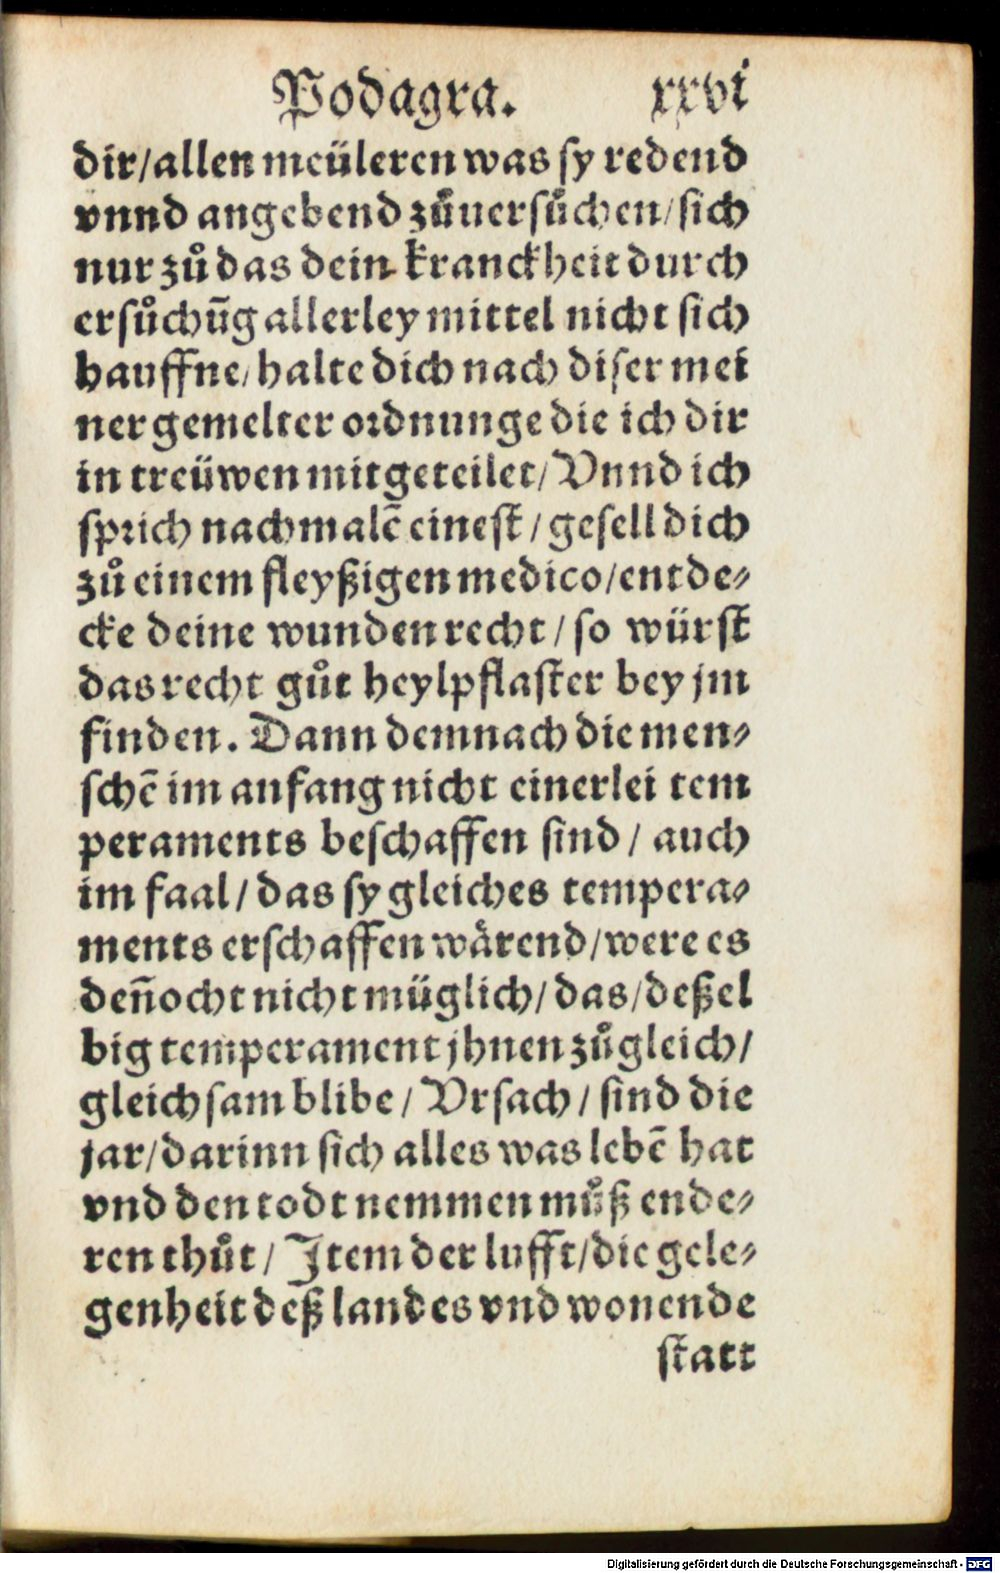 Podagra. xxvi
dir/allen meüleren was sy redend
vnnd angebend zůuersůchen/sich
nur zů das dein kranckheit durch
ersůchūg allerley mittel nicht sich
hauffne/halte dich nach diser mei
ner gemelter ordnunge die ich dir
in treüwen mitgeteilet/Vnnd ich
sprich nachmalē einest/gesell dich
zů einem fleyßigen medico/entde⸗
cke deine wunden recht/so würst
das recht gůt heylpflaster bey jm
finden. Dann demnach die men⸗
schē im anfang nicht einerlei tem
peraments beschaffen sind/auch
im faal/das sy gleiches tempera⸗
ments erschaffen wärend/were es
den̄ocht nicht müglich/das/deßel
big temperament jhnen zůgleich/
gleichsam blibe/Vrsach/sind die
jar/darinn sich alles was lebē hat
vnd den todt nemmen můß ende⸗
ren thůt/Item der lufft/die gele⸗
genheit deß landes vnd wonende
statt
Digitalisierung gefördert durch die Deutsche Forschungsgemeinschaft - DFG